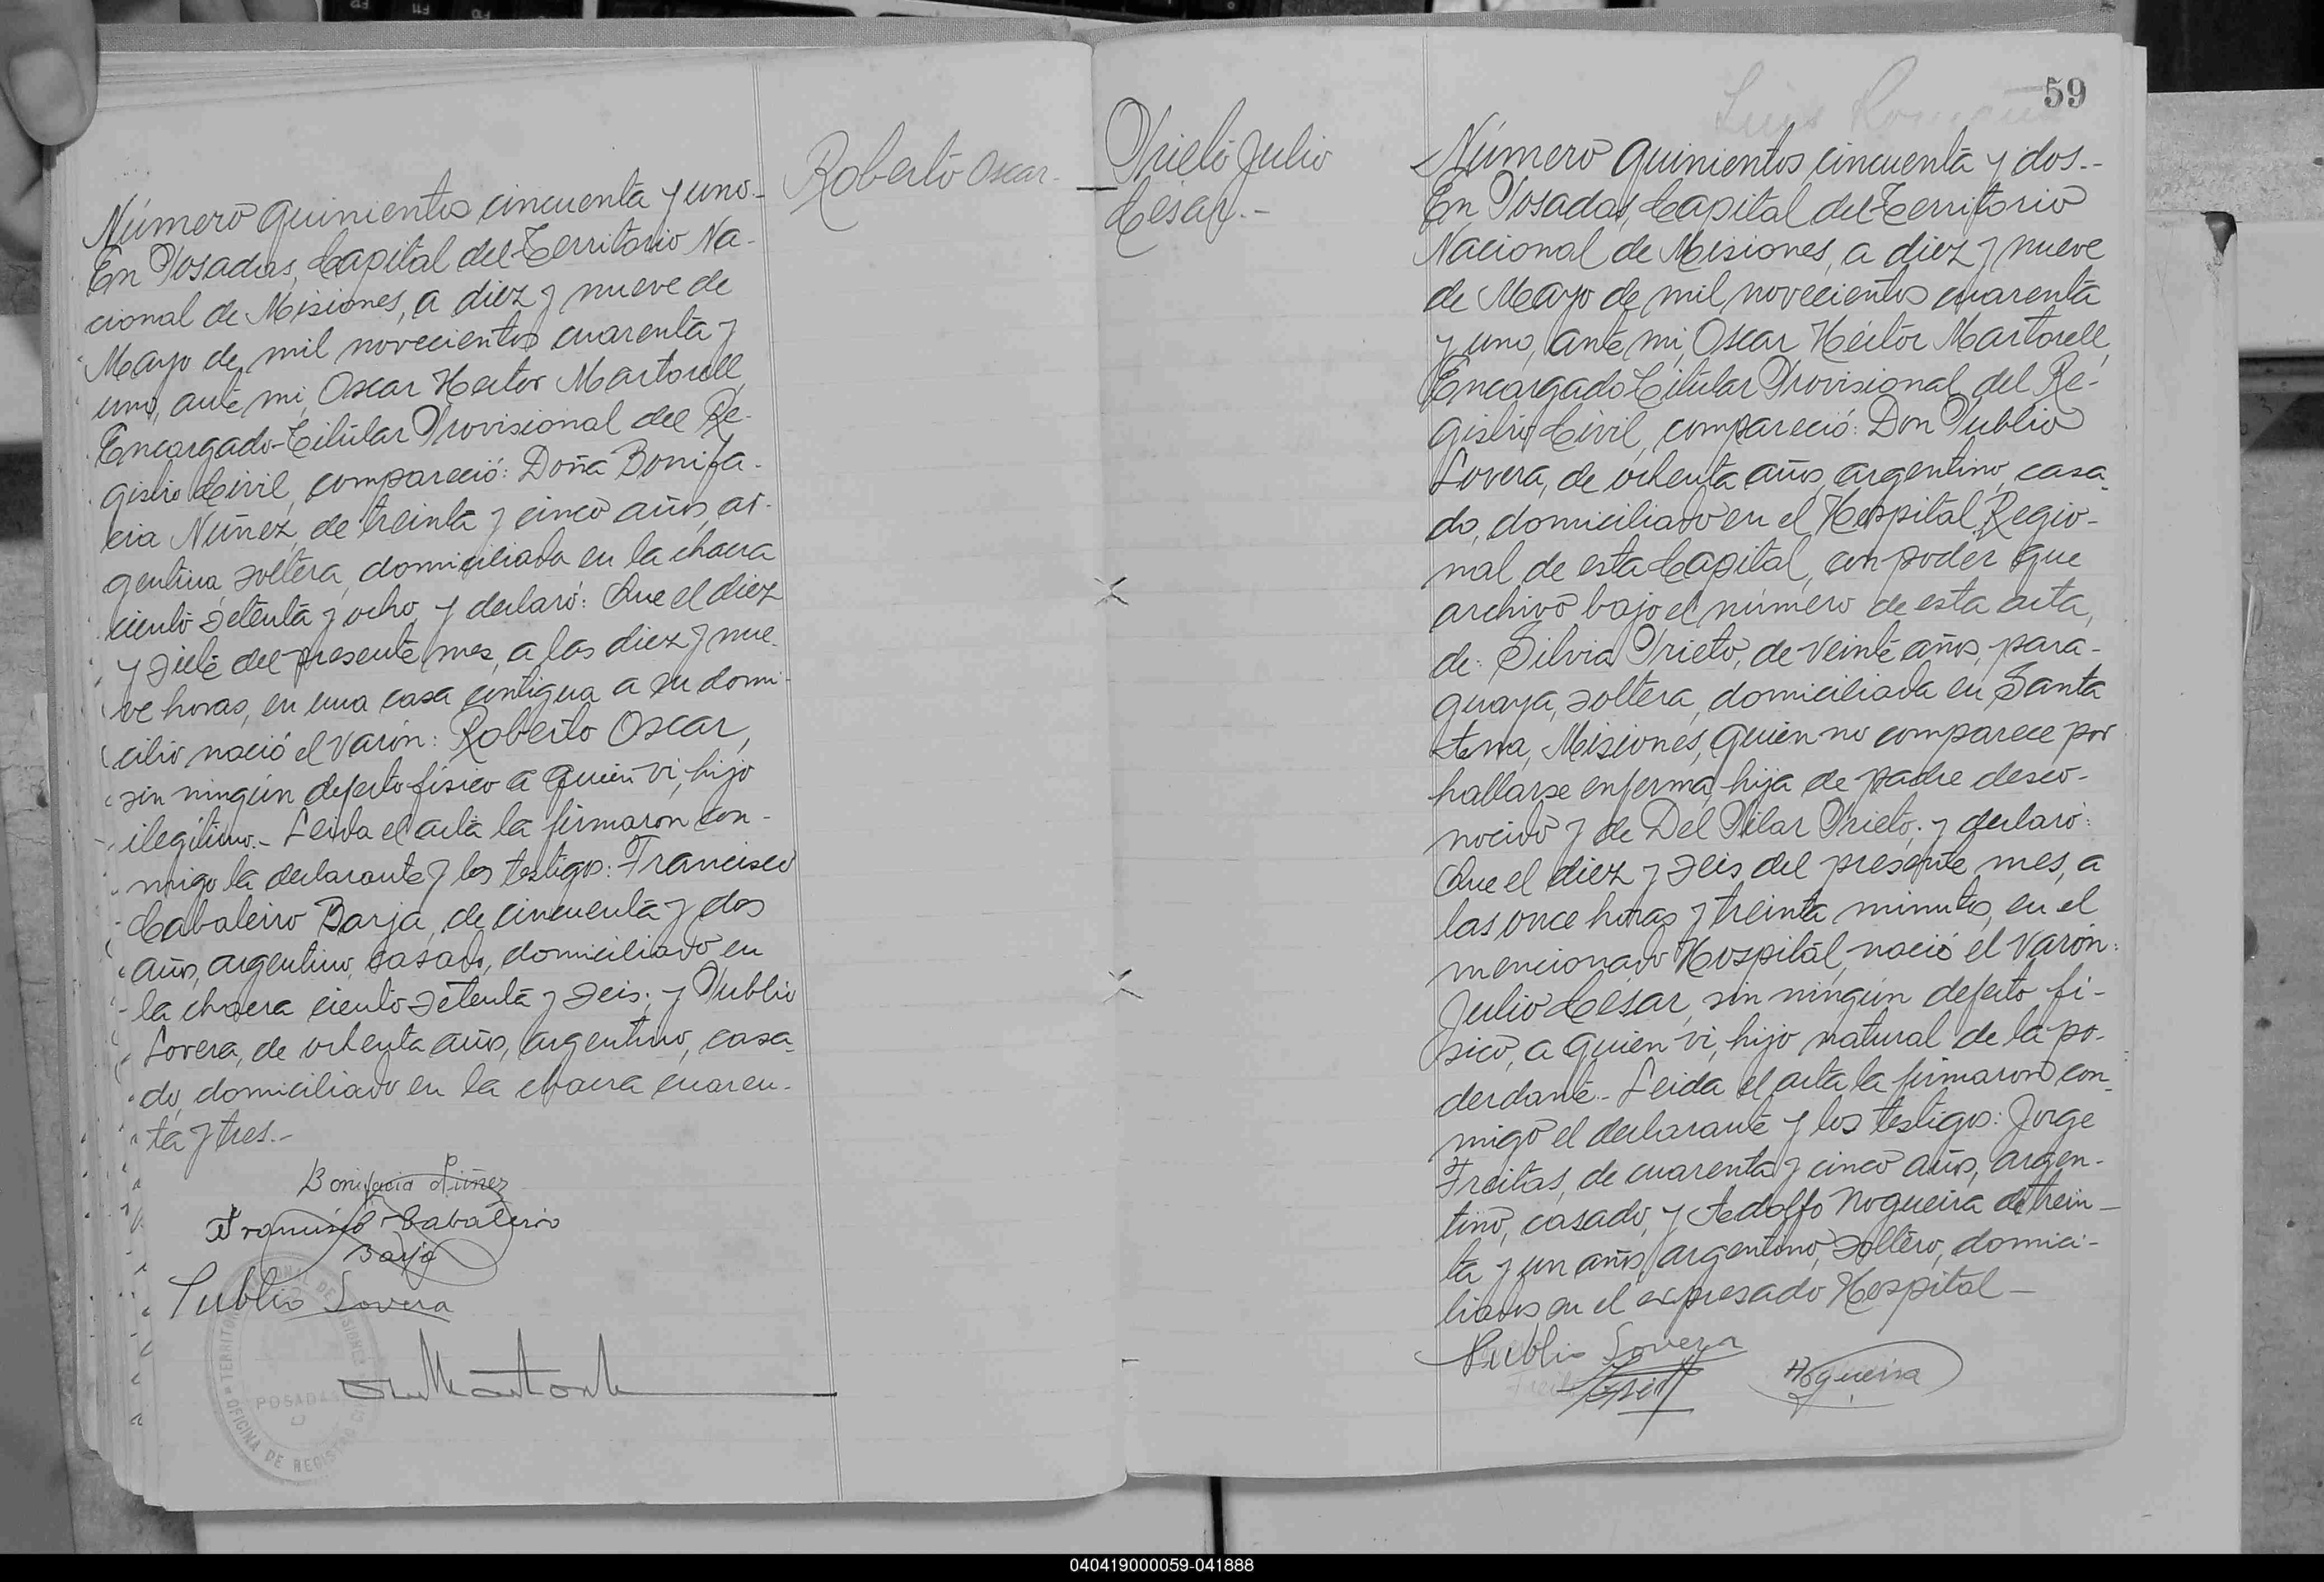 Roberto Oscar.
Número quinientos cincuenta y uno.-
En Posadas, Capital del Territorio Na-
cional de Misiones, a diez y nueve de
Mayo de mil novecientos cuarenta y
uno, ante mi, Oscar Hector Martorell,
Encargado-Titular Provisional del Re-
gistro Civil, compareció: Doña Bonifa-
cia Núñez, de treinta y cinco años, ar-
gentina, soltera, domiciliada en la chacra
ciento setenta y ocho, y declaró: Que el diez
y siete del presente mes, a las diez y nue-
ve horas, en una casa contigua a su domi-
cilio nació el varón: Roberto Oscar,
sin ningún defecto físico a quien vi, hijo
ilegítimo.- Leida el acta la firmaron con-
migo la declarante y los testigos: Francisco
Cabaleiro Barja, de cincuenta y dos
años, argentino, casado, domiciliado en
la chacra ciento setenta y seis; y Publio
Lovera, de ochenta años, argentino, casa-
do, domiciliado en la chacra cuaren-
ta y tres.-
Bonifacia Núñez
Francisco Cabaleiro
Barja
Publio Lovera
TERRITORIO NACIONAL DE MISIONES
POSADAS
OFICINA DE REGISTRO CIVIL
59
Prieto Julio
César.-
Número quinientos cincuenta y dos.-
En Posadas, Capital del Territorio
Nacional de Misiones, a diez y nueve
de Mayo de mil novecientos cuarenta
y uno, ante mi, Oscar Héctor Martorell,
Encargado Titular Provisional del Re-
gistro Civil, compareció: Don Publio
Lovera, de ochenta años, argentino, casa-
do, domiciliado en el Hospital Regio-
nal de esta Capital, con poder que
archivo bajo el número de esta acta,
de: Silvia Prieto, de veinte años, para-
guaya, soltera, domiciliada en Santa
Ana, Misiones, quien no comparece por
hallarse enferma, hija de padre desco-
nocido y de Del Pilar Prieto; y declaró:
Que el diez y seis del presente mes, a
las once horas y treinta minutos, en el
mencionado Hospital, nació el varón:
Julio César, sin ningún defecto fí-
sico, a quien vi, hijo natural de la po-
derdante.- Leida el acta la firmaron con-
migo el declarante y los testigos: Jorge
Freitas, de cuarenta y cinco años, argen-
tino, casado, y Adolfo Nogueira de trein-
ta y un años, argentino, soltero, domici-
liados en el expresado Hospital-
Publio Lovera
Nogueira
040419000059-041888